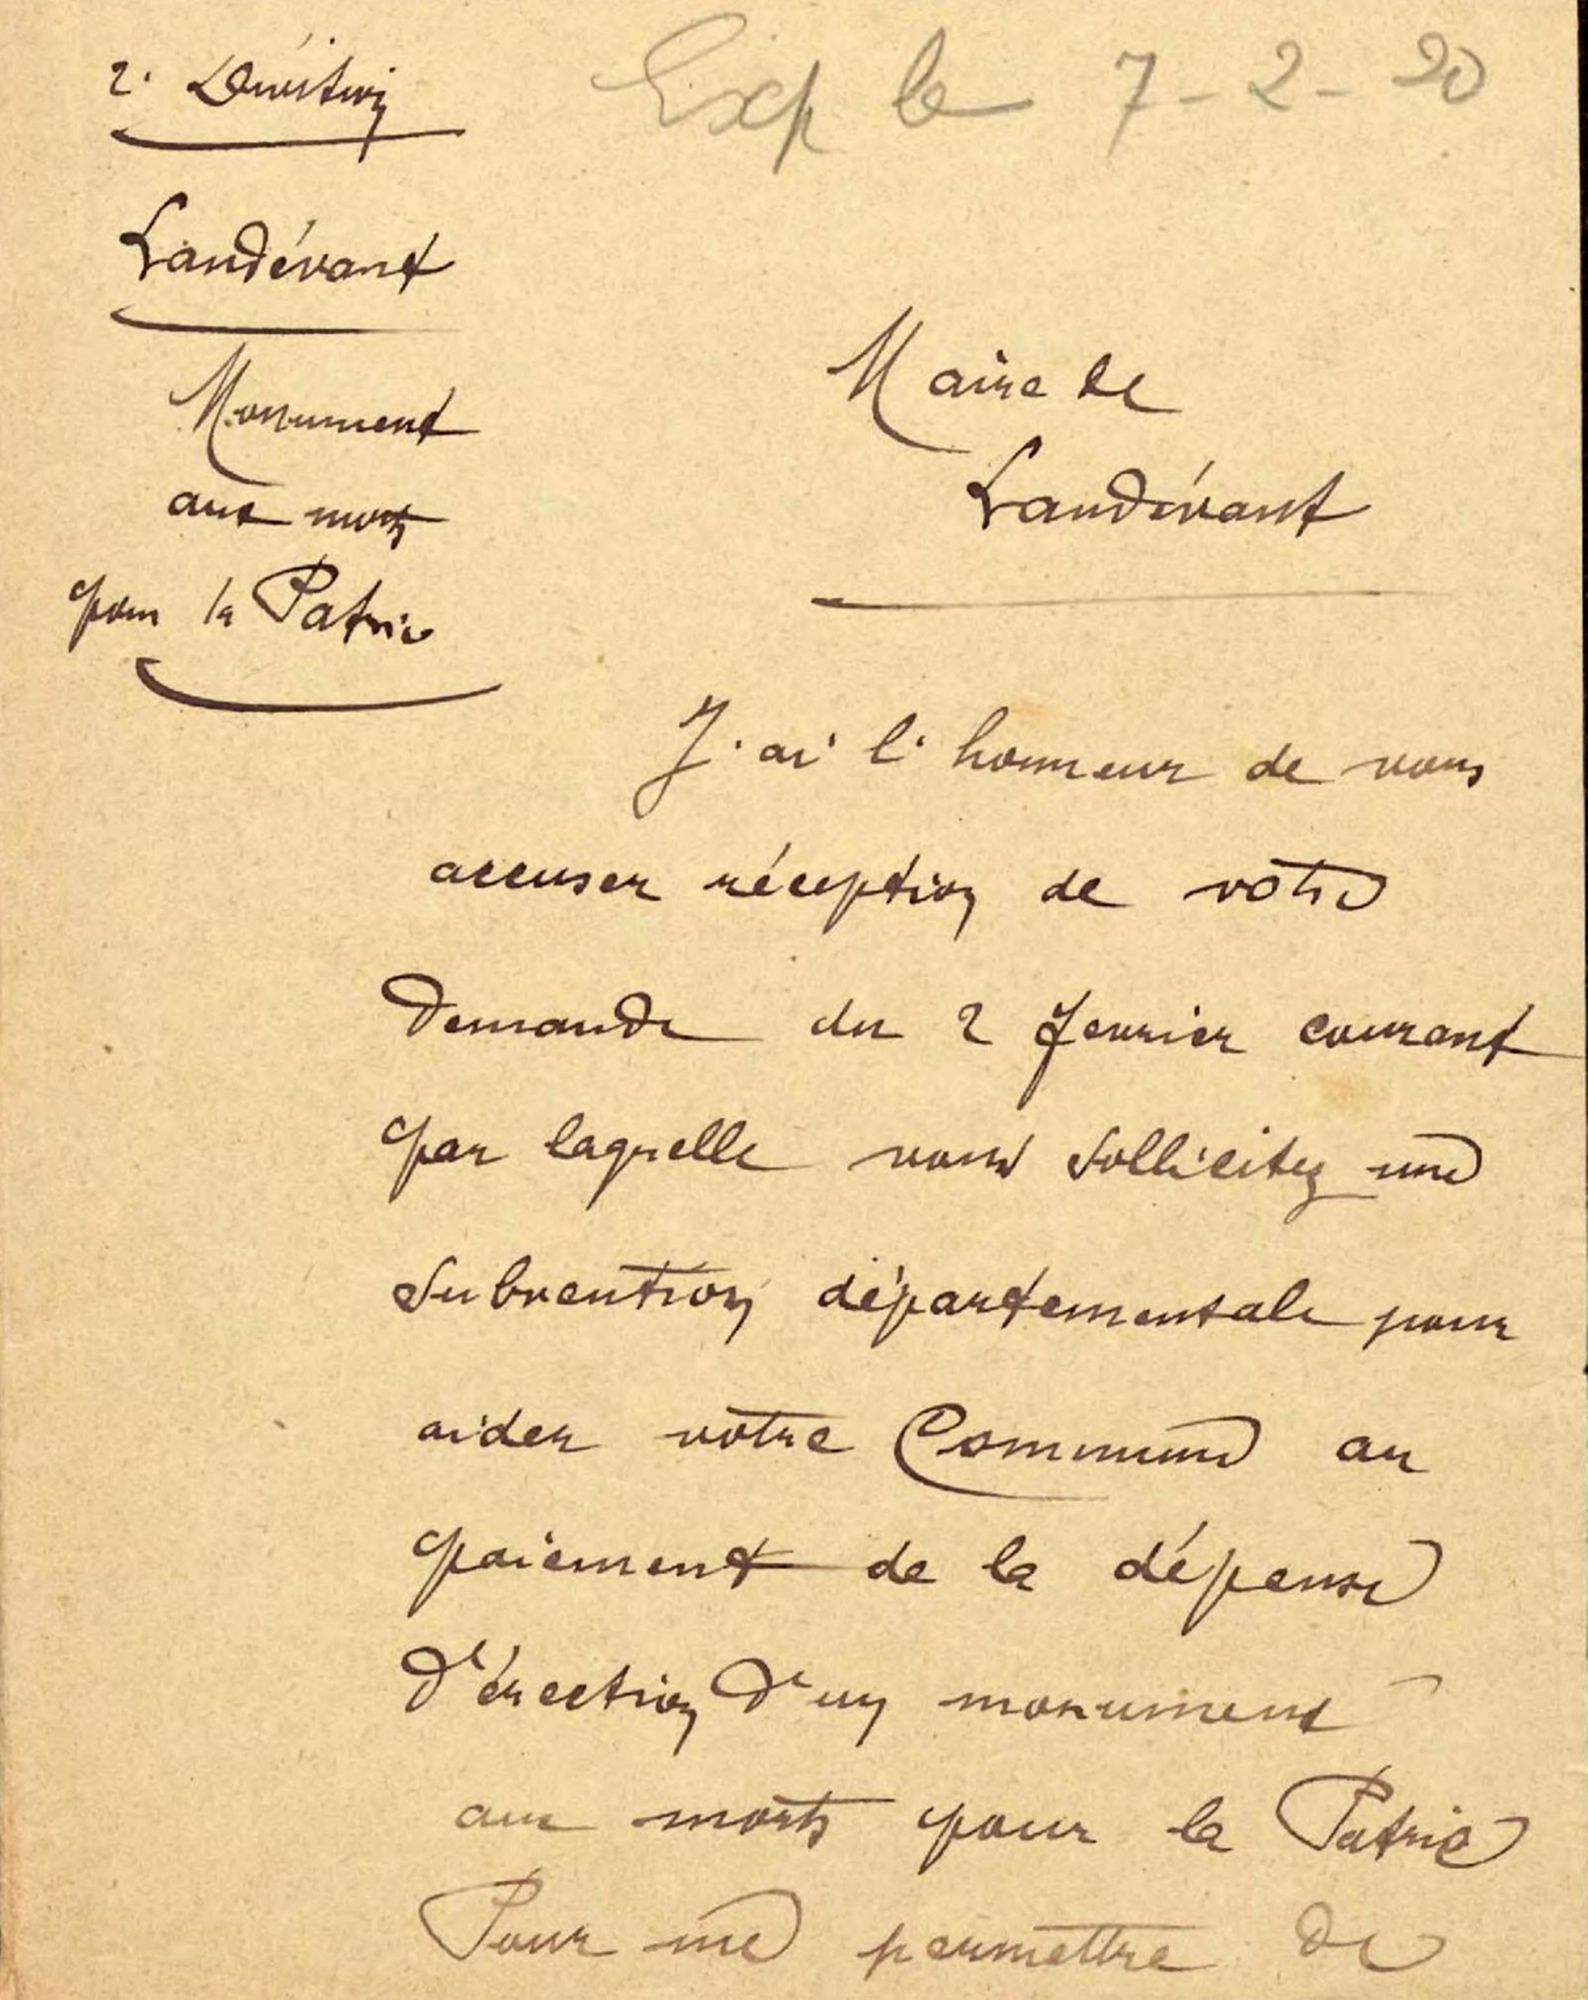 2e Division
Exp le 7-2-20
Landévant
Monument
aux morts
pour la Patrie
Maire de
Landévant
J'ai l'honneur de vous
accuser réception de votre
demande du 2 fevrier courant
par laquelle vous sollicitez une
subvention départementale pour
aider votre Commune au
paiement de la dépense
d'érection d'un monument
aux morts pour la Patrie
Pour me permettre de